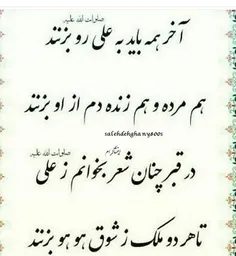 آخر همه باید به علی رو بزنند
صلوات الله علیه
هم مرده و هم زنده دم از او بزنند
salehdehghany6001
اینستاگرام
در قبر چنان شعر بخوانم ز علی
صلوات الله علیه
تا هر دو ملک ز شوق هو هو بزنند